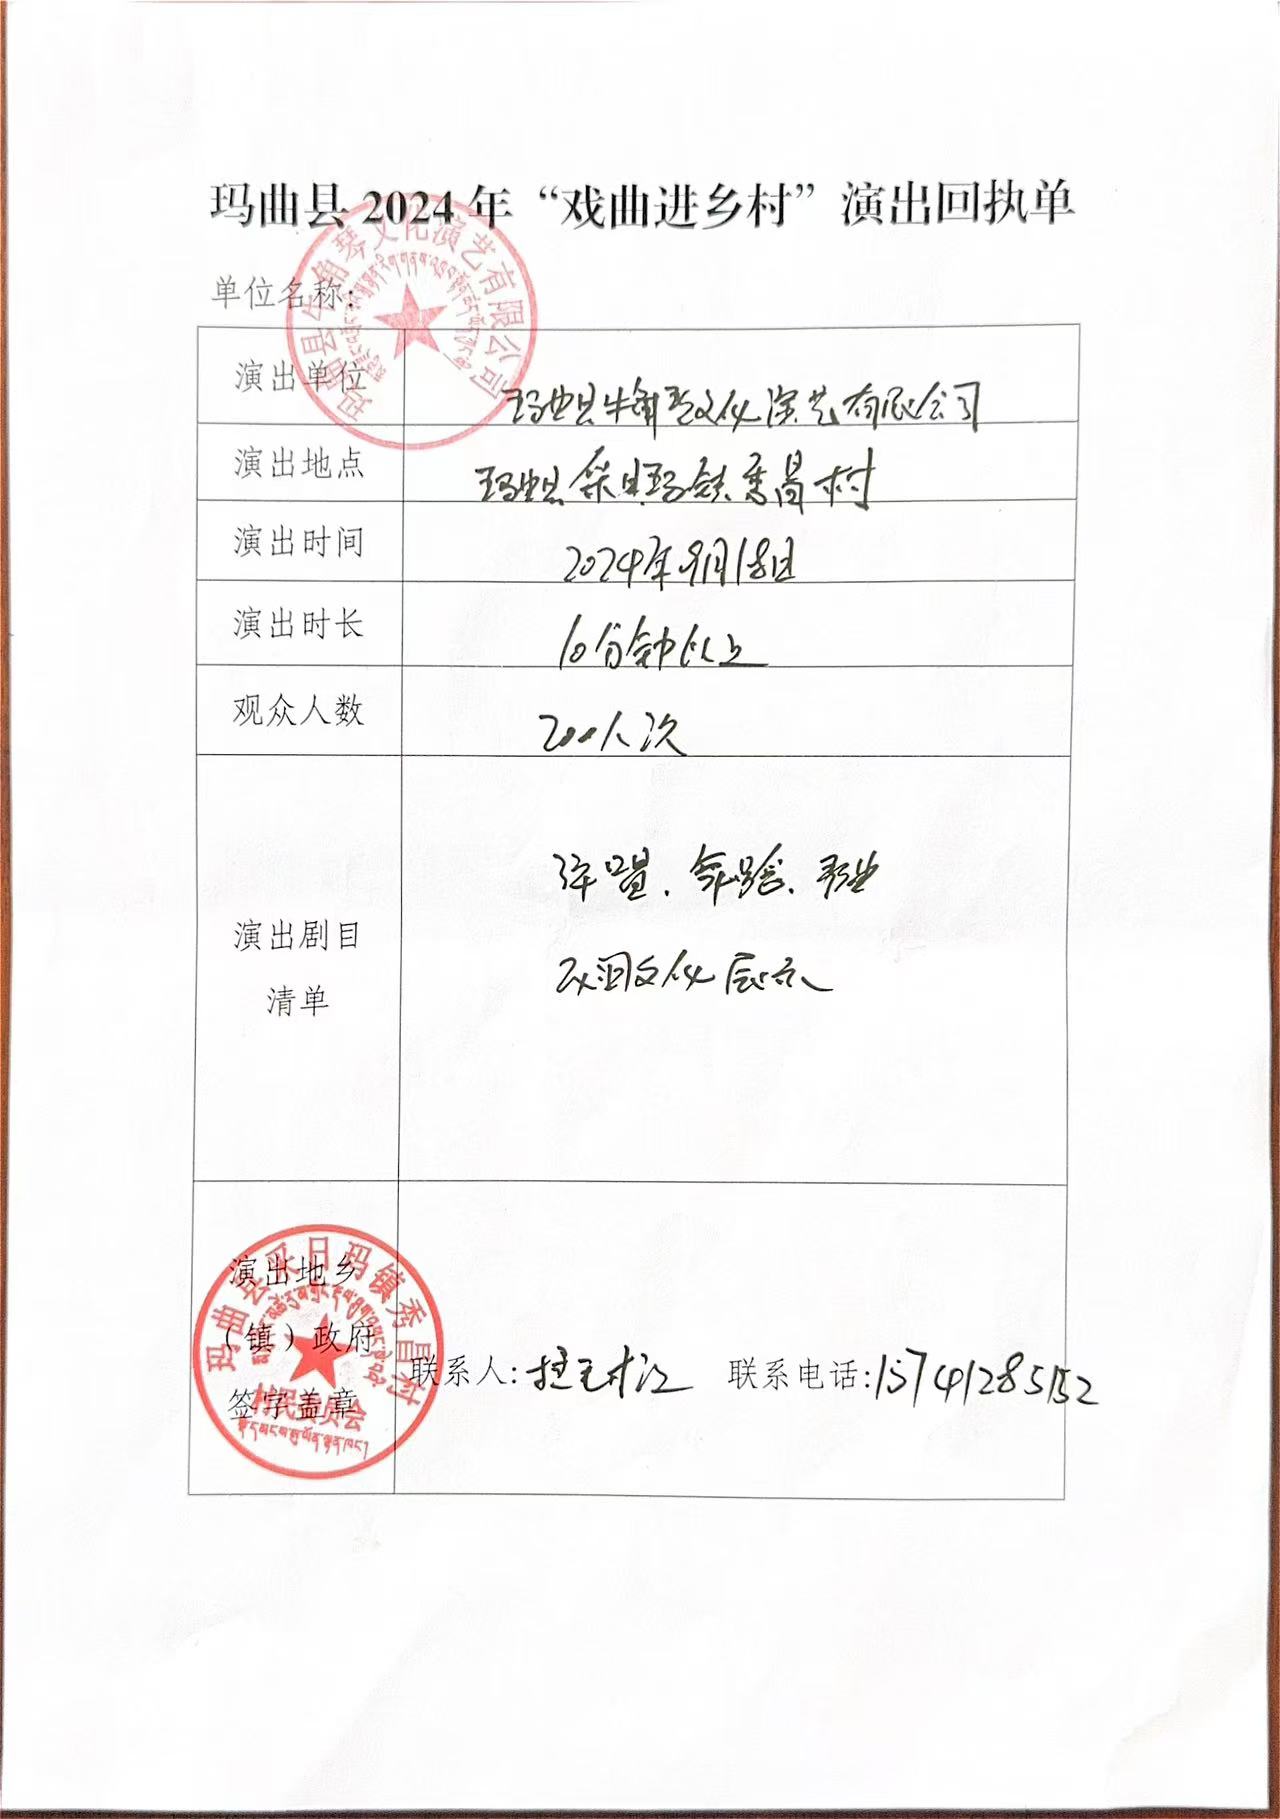 玛曲县 2024 年 “戏曲进乡村” 演出回执单
玛曲县牛角琴文化演艺有限公司
单位名称:
演出单位 玛曲县牛角琴文化演艺有限公司
演出地点 玛曲县采日玛镇秀昌村
演出时间 2024年9月18日
演出时长
分钟以上
观众人数 200人次
弹唱、
演出剧目
文化展示
清单
玛曲县采日玛镇秀昌村
村民委员会
演出地乡
（镇）政府
联系人: 联系电话:15741285152
签字盖章